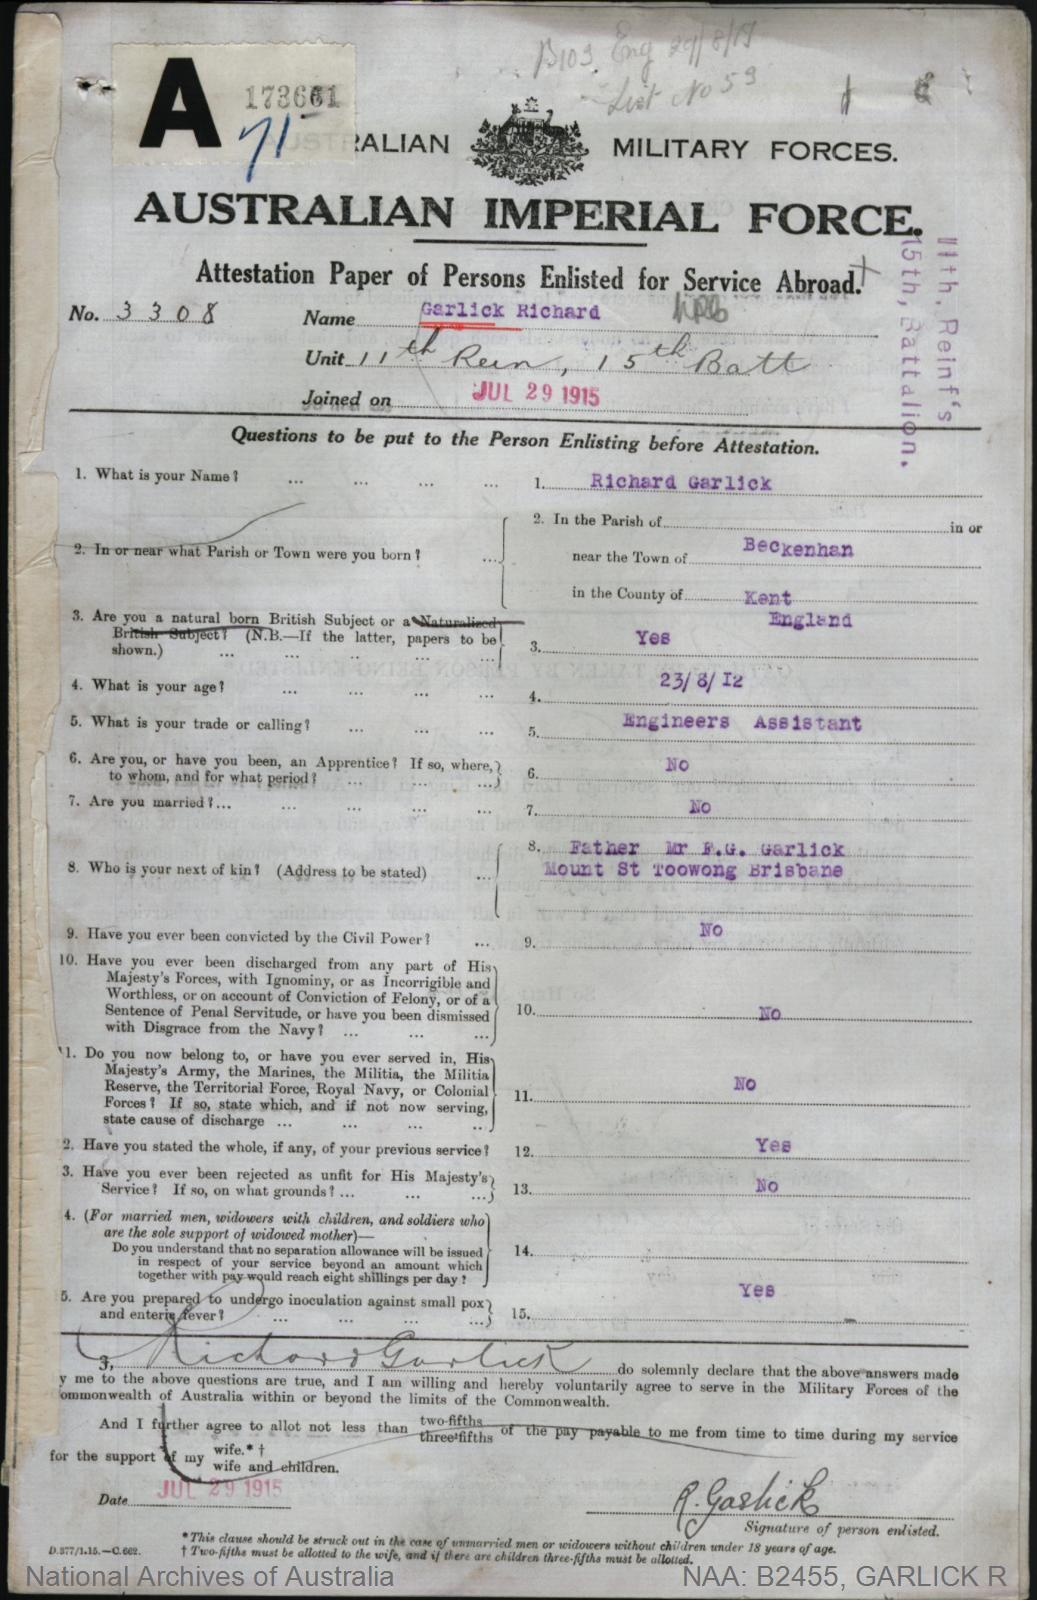 B103. Eng 29/8/19
List No 53
A 173661
71
AUSTRALIAN MILITARY FORCES.
AUSTRALIAN IMPERIAL FORCE.
Attestation Paper of Persons Enlisted for Service Abroad.
11th, Reinf's
15th, Battalion.
No. 3308 Name Garlick Richard
Unit 11th Rein, 15th Batt
Joined on JUL 29 1915
Questions to be put to the Person Enlisting before Attestation.
1. What is your Name? ... ... ... ... 1. Richard Garlick
2. In or near what Parish or Town were you born? ... 2. In the Parish of in or
near the Town of Beckenhan
in the County of Kent
England
3. Are you a natural born British Subject or a Naturalized
British Subject? (N.B.—If the latter, papers to be
shown.) ... ... ... ... ... 3. Yes
4. What is your age? ... ... ... ... 4. 23/8/12
5. What is your trade or calling? ... ... ... 5. Engineers Assistant
6. Are you, or have you been, an Apprentice? If so, where,
to whom, and for what period? ... ... ... 6. No
7. Are you married?... ... ... ... ... 7. No
8. Who is your next of kin? (Address to be stated) ... 8. Father Mr F.G. Garlick
Mount St Toowong Brisbane
9. Have you ever been convicted by the Civil Power? ... 9. No
10. Have you ever been discharged from any part of His
Majesty's Forces, with Ignominy, or as Incorrigible and
Worthless, or on account of Conviction of Felony, or of a
Sentence of Penal Servitude, or have you been dismissed
with Disgrace from the Navy? ... ... ... 10. No
1. Do you now belong to, or have you ever served in, His
Majesty's Army, the Marines, the Militia, the Militia
Reserve, the Territorial Force, Royal Navy, or Colonial
Forces? If so, state which, and if not now serving,
state cause of discharge ... ... ... ... 11. No
2. Have you stated the whole, if any, of your previous service? 12. Yes
3. Have you ever been rejected as unfit for His Majesty's
Service? If so, on what grounds? ... ... ... 13. No
4. (For married men, widowers with children, and soldiers who
are the sole support of widowed mother)—
Do you understand that no separation allowance will be issued
in respect of your service beyond an amount which
together with pay would reach eight shillings per day? 14.
5. Are you prepared to undergo inoculation against small pox
and enteric fever? ... ... ... ... 15. Yes
I, Richard Garlick do solemnly declare that the above answers made
y me to the above questions are true, and I am willing and hereby voluntarily agree to serve in the Military Forces of the
ommonwealth of Australia within or beyond the limits of the Commonwealth.
And I further agree to allot not less than two-fifths three-fifths of the pay payable to me from time to time during my service
for the support of my wife.* † wife and children.
Date JUL 29 1915
R. Garlick
Signature of person enlisted.
* This clause should be struck out in the case of unmarried men or widowers without children under 18 years of age.
D.377/1.15.—C.662. † Two-fifths must be allotted to the wife, and if there are children three-fifths must be allotted.
National Archives of Australia NAA: B2455, GARLICK R